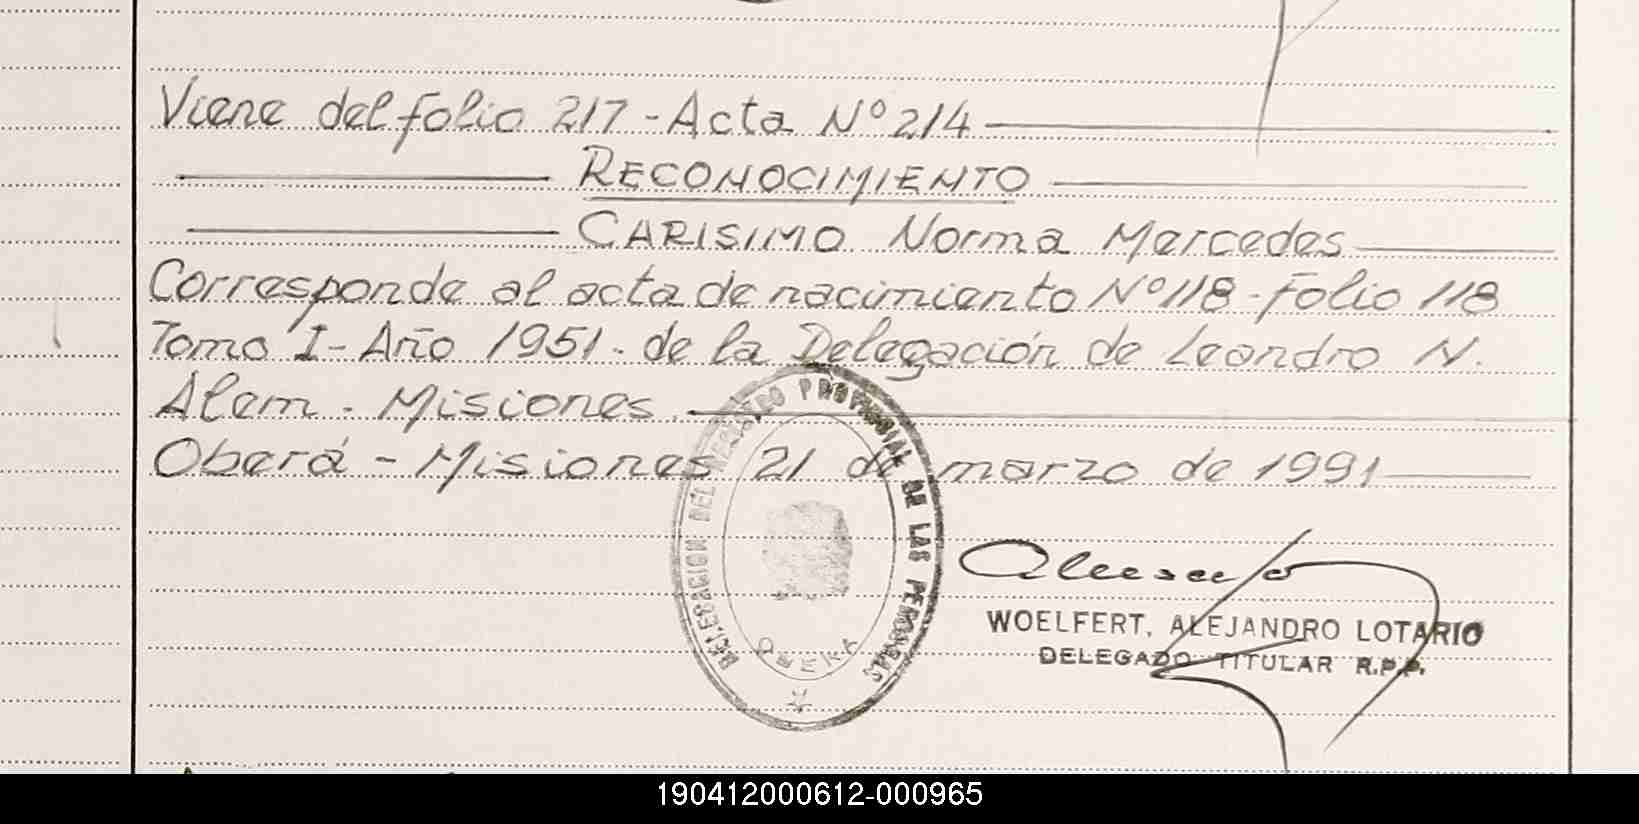 Viene del folio 217 - Acta Nº 214
RECONOCIMIENTO
CARISIMO Norma Mercedes
Corresponde al acta de nacimiento Nº 118 - folio 118
Tomo I - Año 1951 - de la Delegación de Leandro N.
Alem - Misiones.
Oberá - Misiones 21 de marzo de 1991
DELEGACION DEL REGISTRO PROVINCIAL DE LAS PERSONAS
OBERA
WOELFERT, ALEJANDRO LOTARIO
DELEGADO TITULAR R.P.P.
190412000612-000965